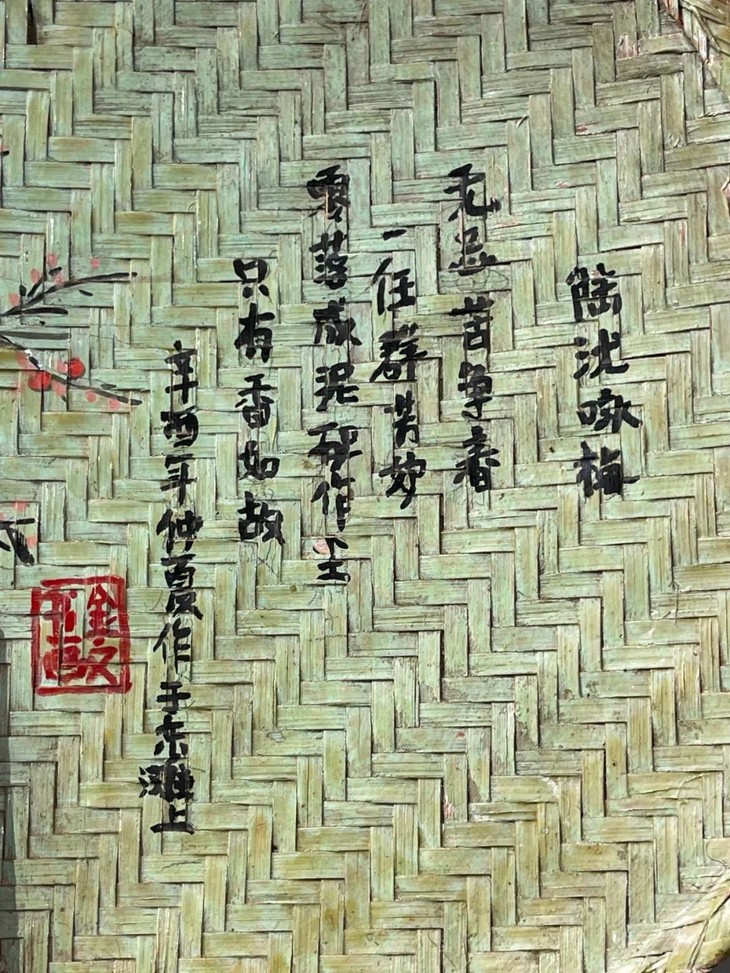 咏梅
无意苦争春
一任群芳妒
零落成泥碾作尘
只有香如故
辛酉年仲夏作于东滩上
金文